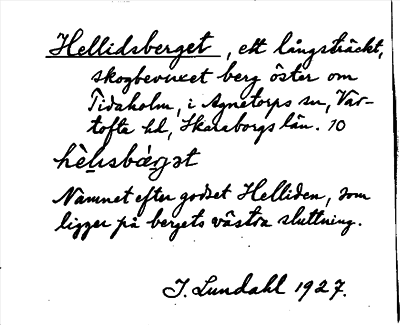 Hellidsberget, ett långsträckt,
skogbevuxet berg öster om
Tidaholm, i Agnetorps sn, Var-
tofta hd, Skaraborgs län. 10
hèlısbárgət
Namnet efter godset Helliden, som
ligger på bergets västra sluttning.
J. Lundahl 1927.